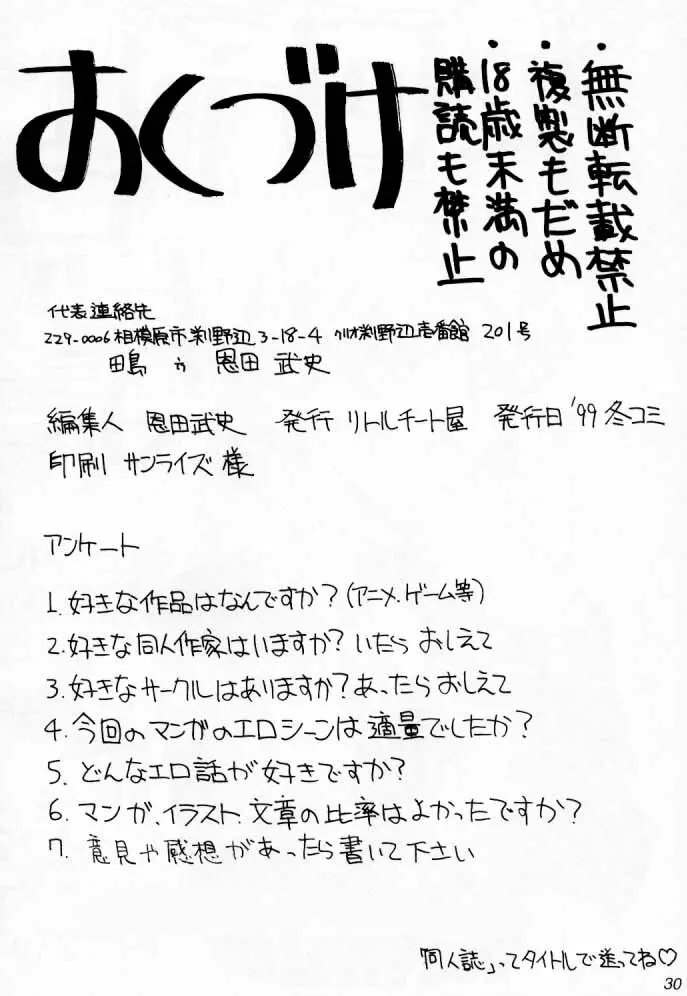 おくづけ
・無断転載禁止
・複製もだめ
・18歳未満の
購読も禁止
代表連絡先
229-0006 相模原市渕野辺 3-18-4 クリオ渕野辺壱番館 201号
恩田 武史
編集人 恩田武史 発行 リトルチート屋 発行日 '99 冬コミ
印刷 サンライズ 様
アンケート
1. 好きな作品はなんですか?(アニメ、ゲーム等)
2. 好きな同人作家はいますか? いたら おしえて
3. 好きなサークルはありますか? あったら おしえて
4. 今回のマンガのエロシーンは 適量でしたか?
5. どんなエロ話が 好きですか?
6. マンガ、イラスト、文章の比率はよかったですか?
7. 意見や感想があったら書いて下さい
「何人誌」ってタイトルで送ってね♡
30